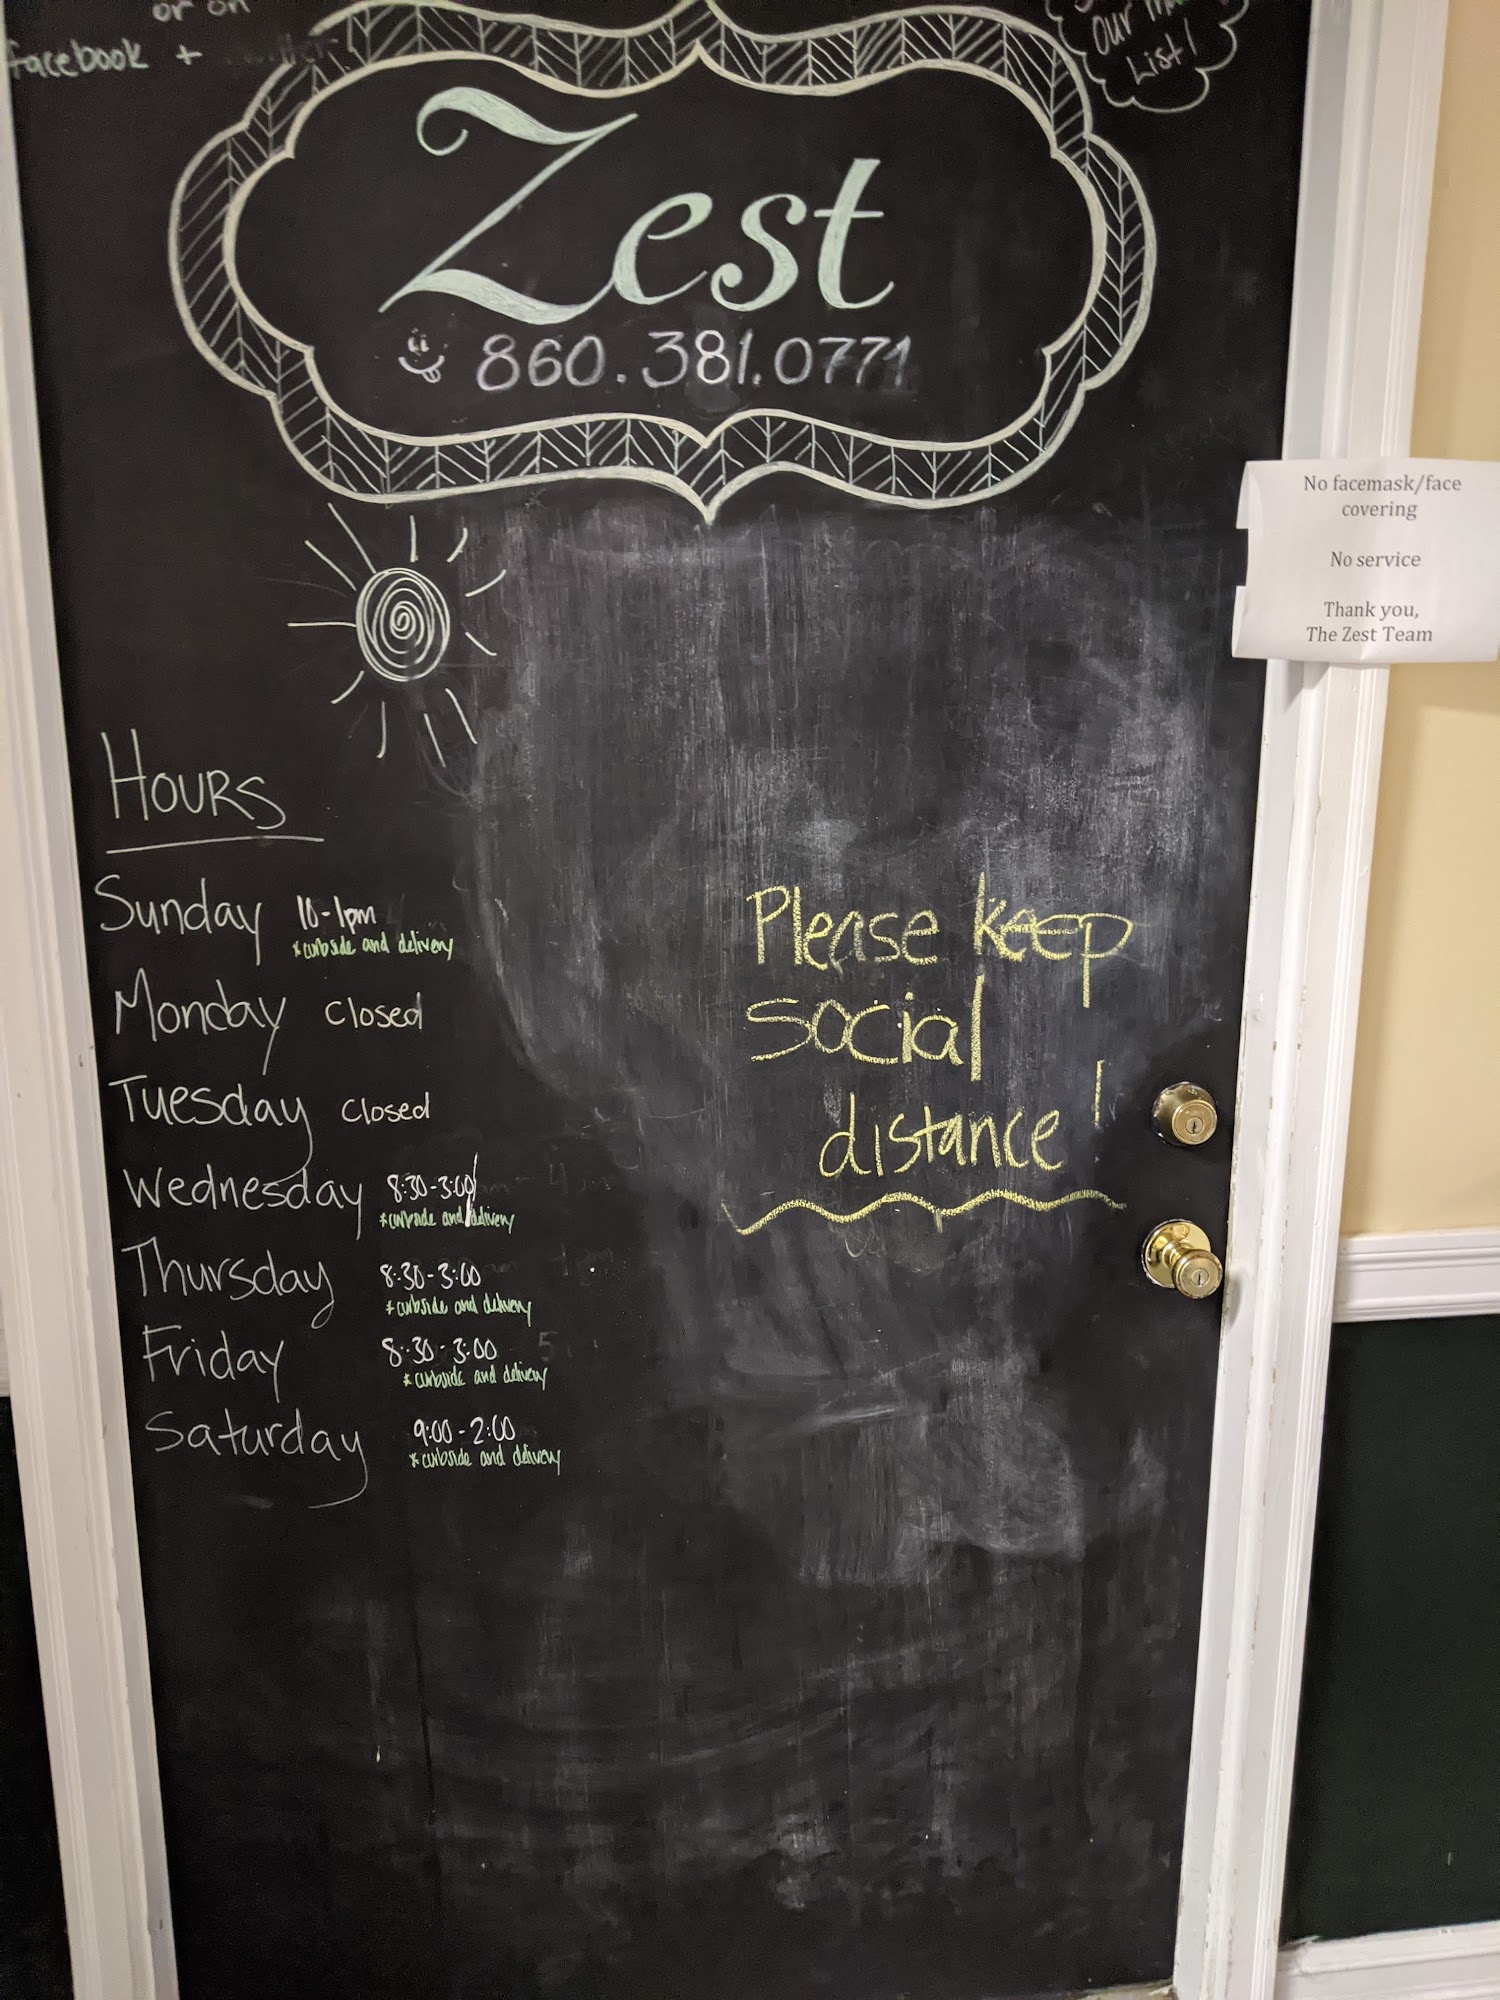 or on
facebook + twitter
our
List!
Zest
860.381.0771
No facemask/face
covering
No service
Thank you,
The Zest Team
HOURS
Sunday 10-1pm
*curbside and delivery
Monday Closed
Tuesday Closed
Wednesday 8:30-3:00
*curbside and delivery
Thursday 8:30-3:00
*curbside and delivery
Friday 8:30-3:00
*curbside and delivery
Saturday 9:00-2:00
*curbside and delivery
Please keep
social
distance!